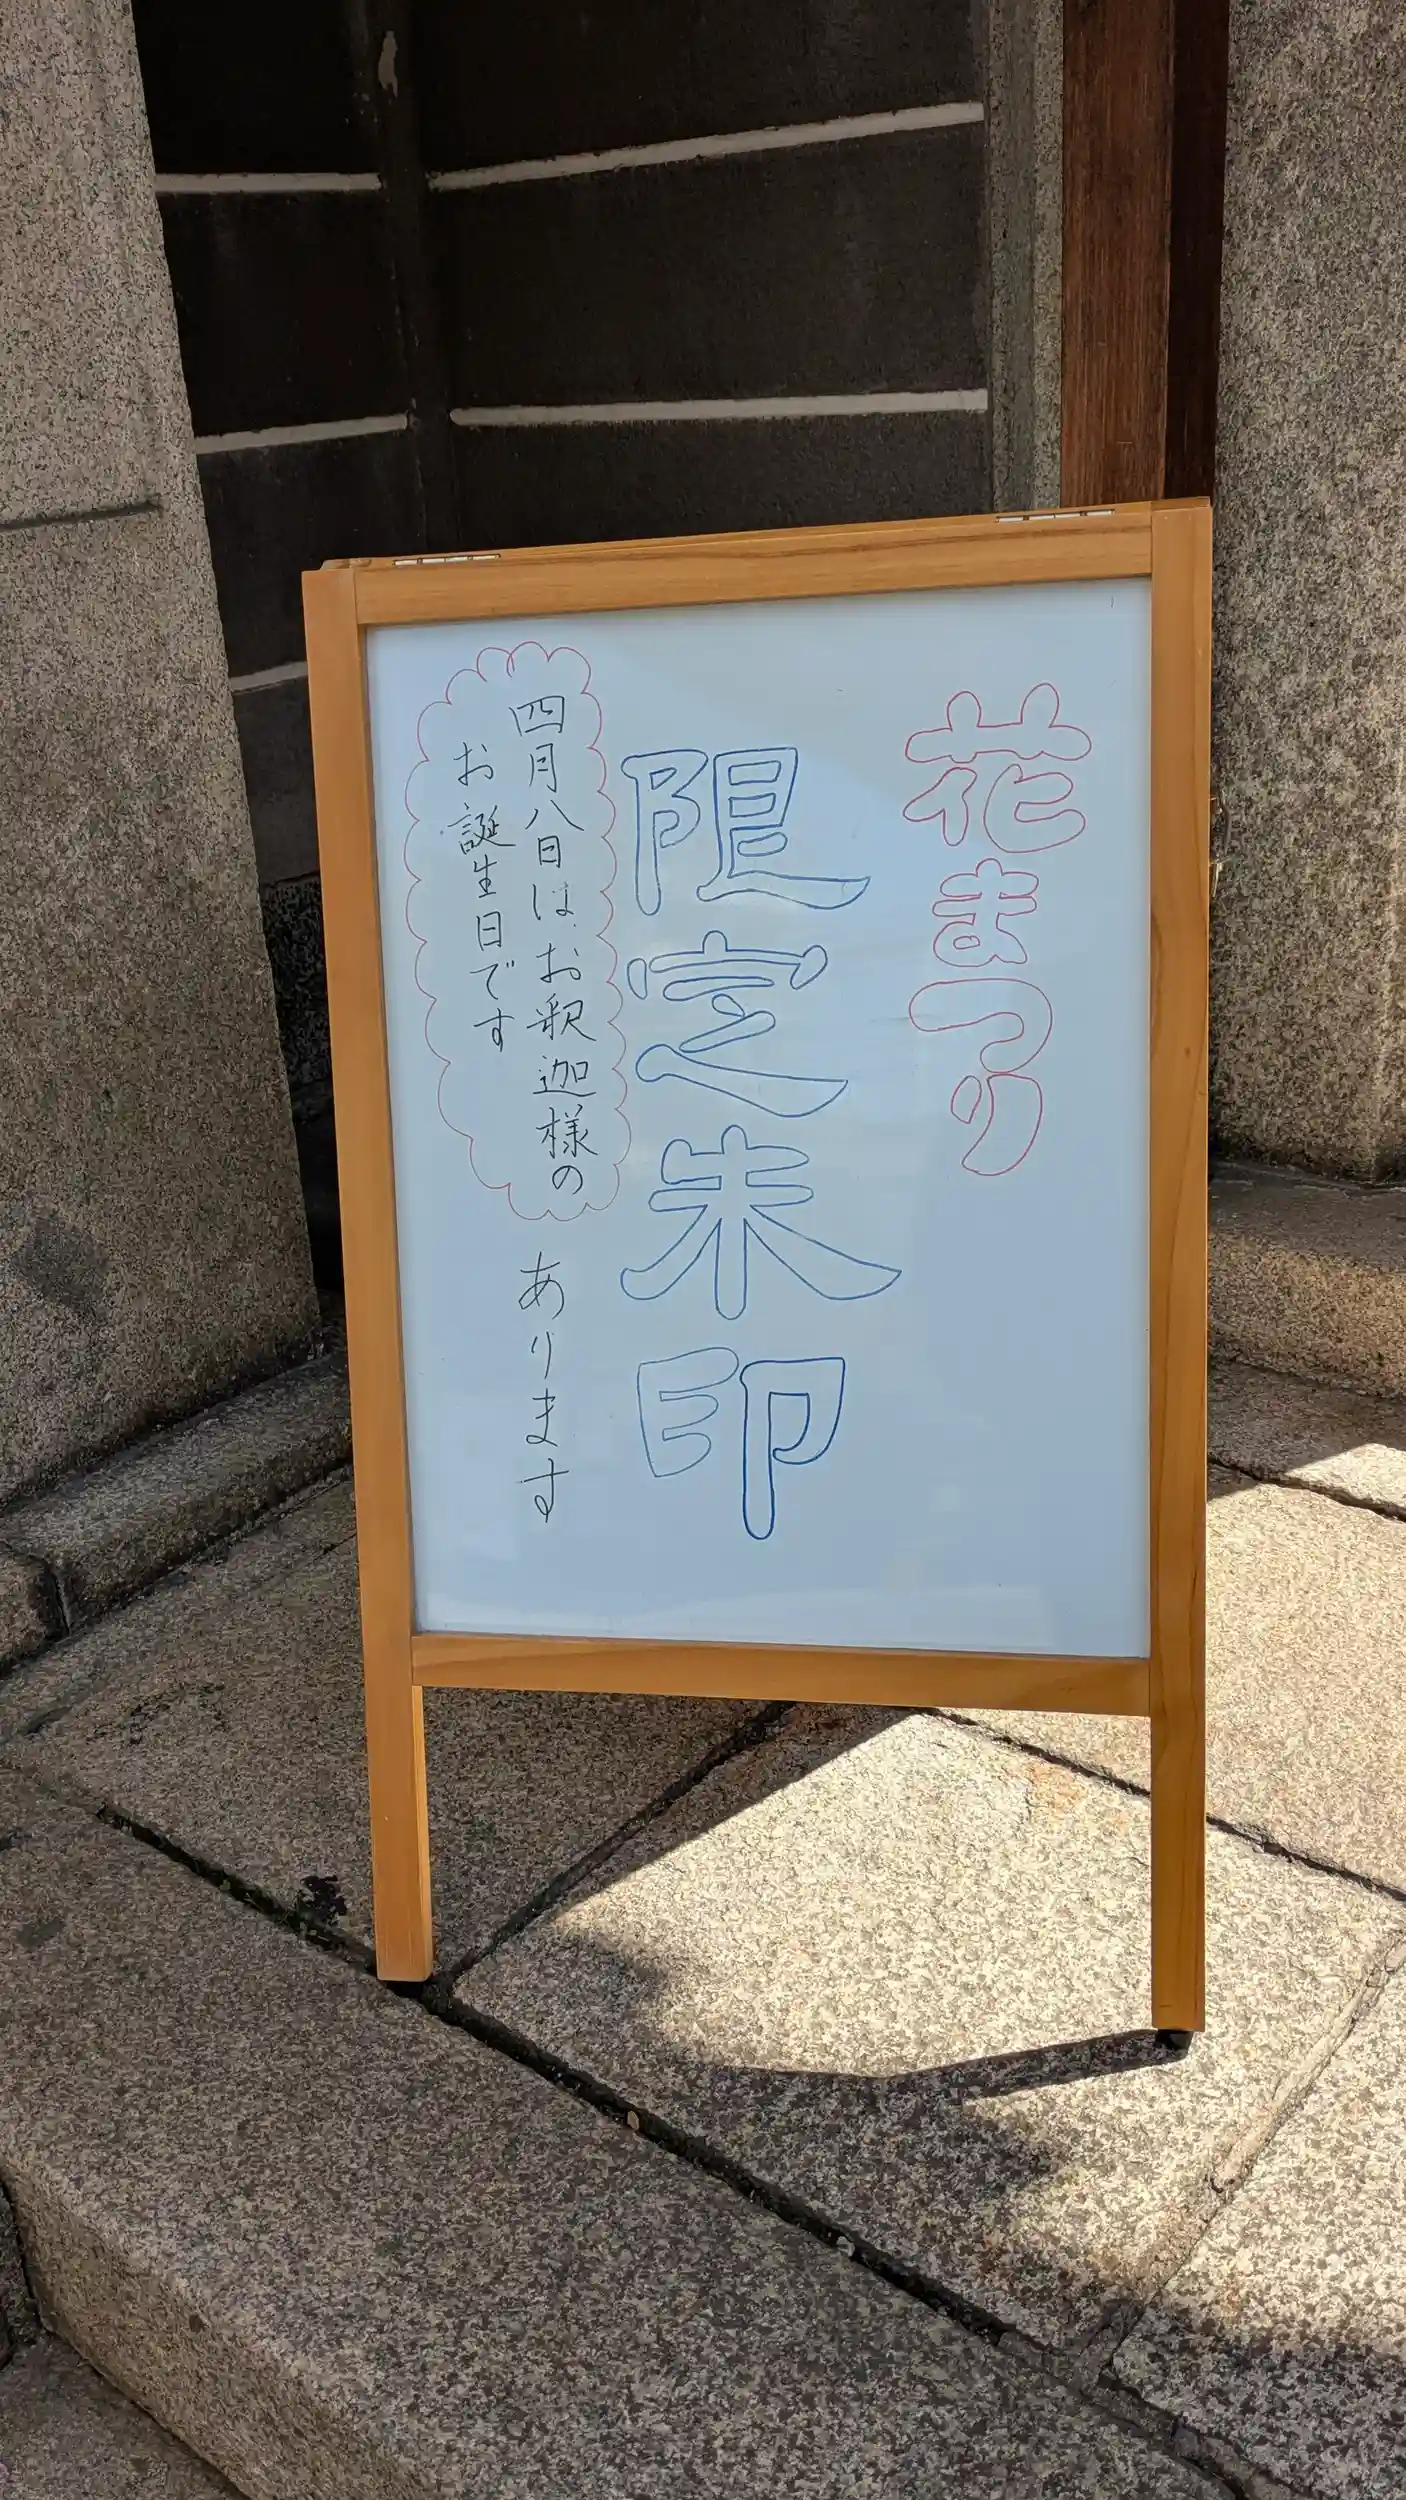 花まつり
限定朱印
あります
四月八日は、お釈迦様の
お誕生日です